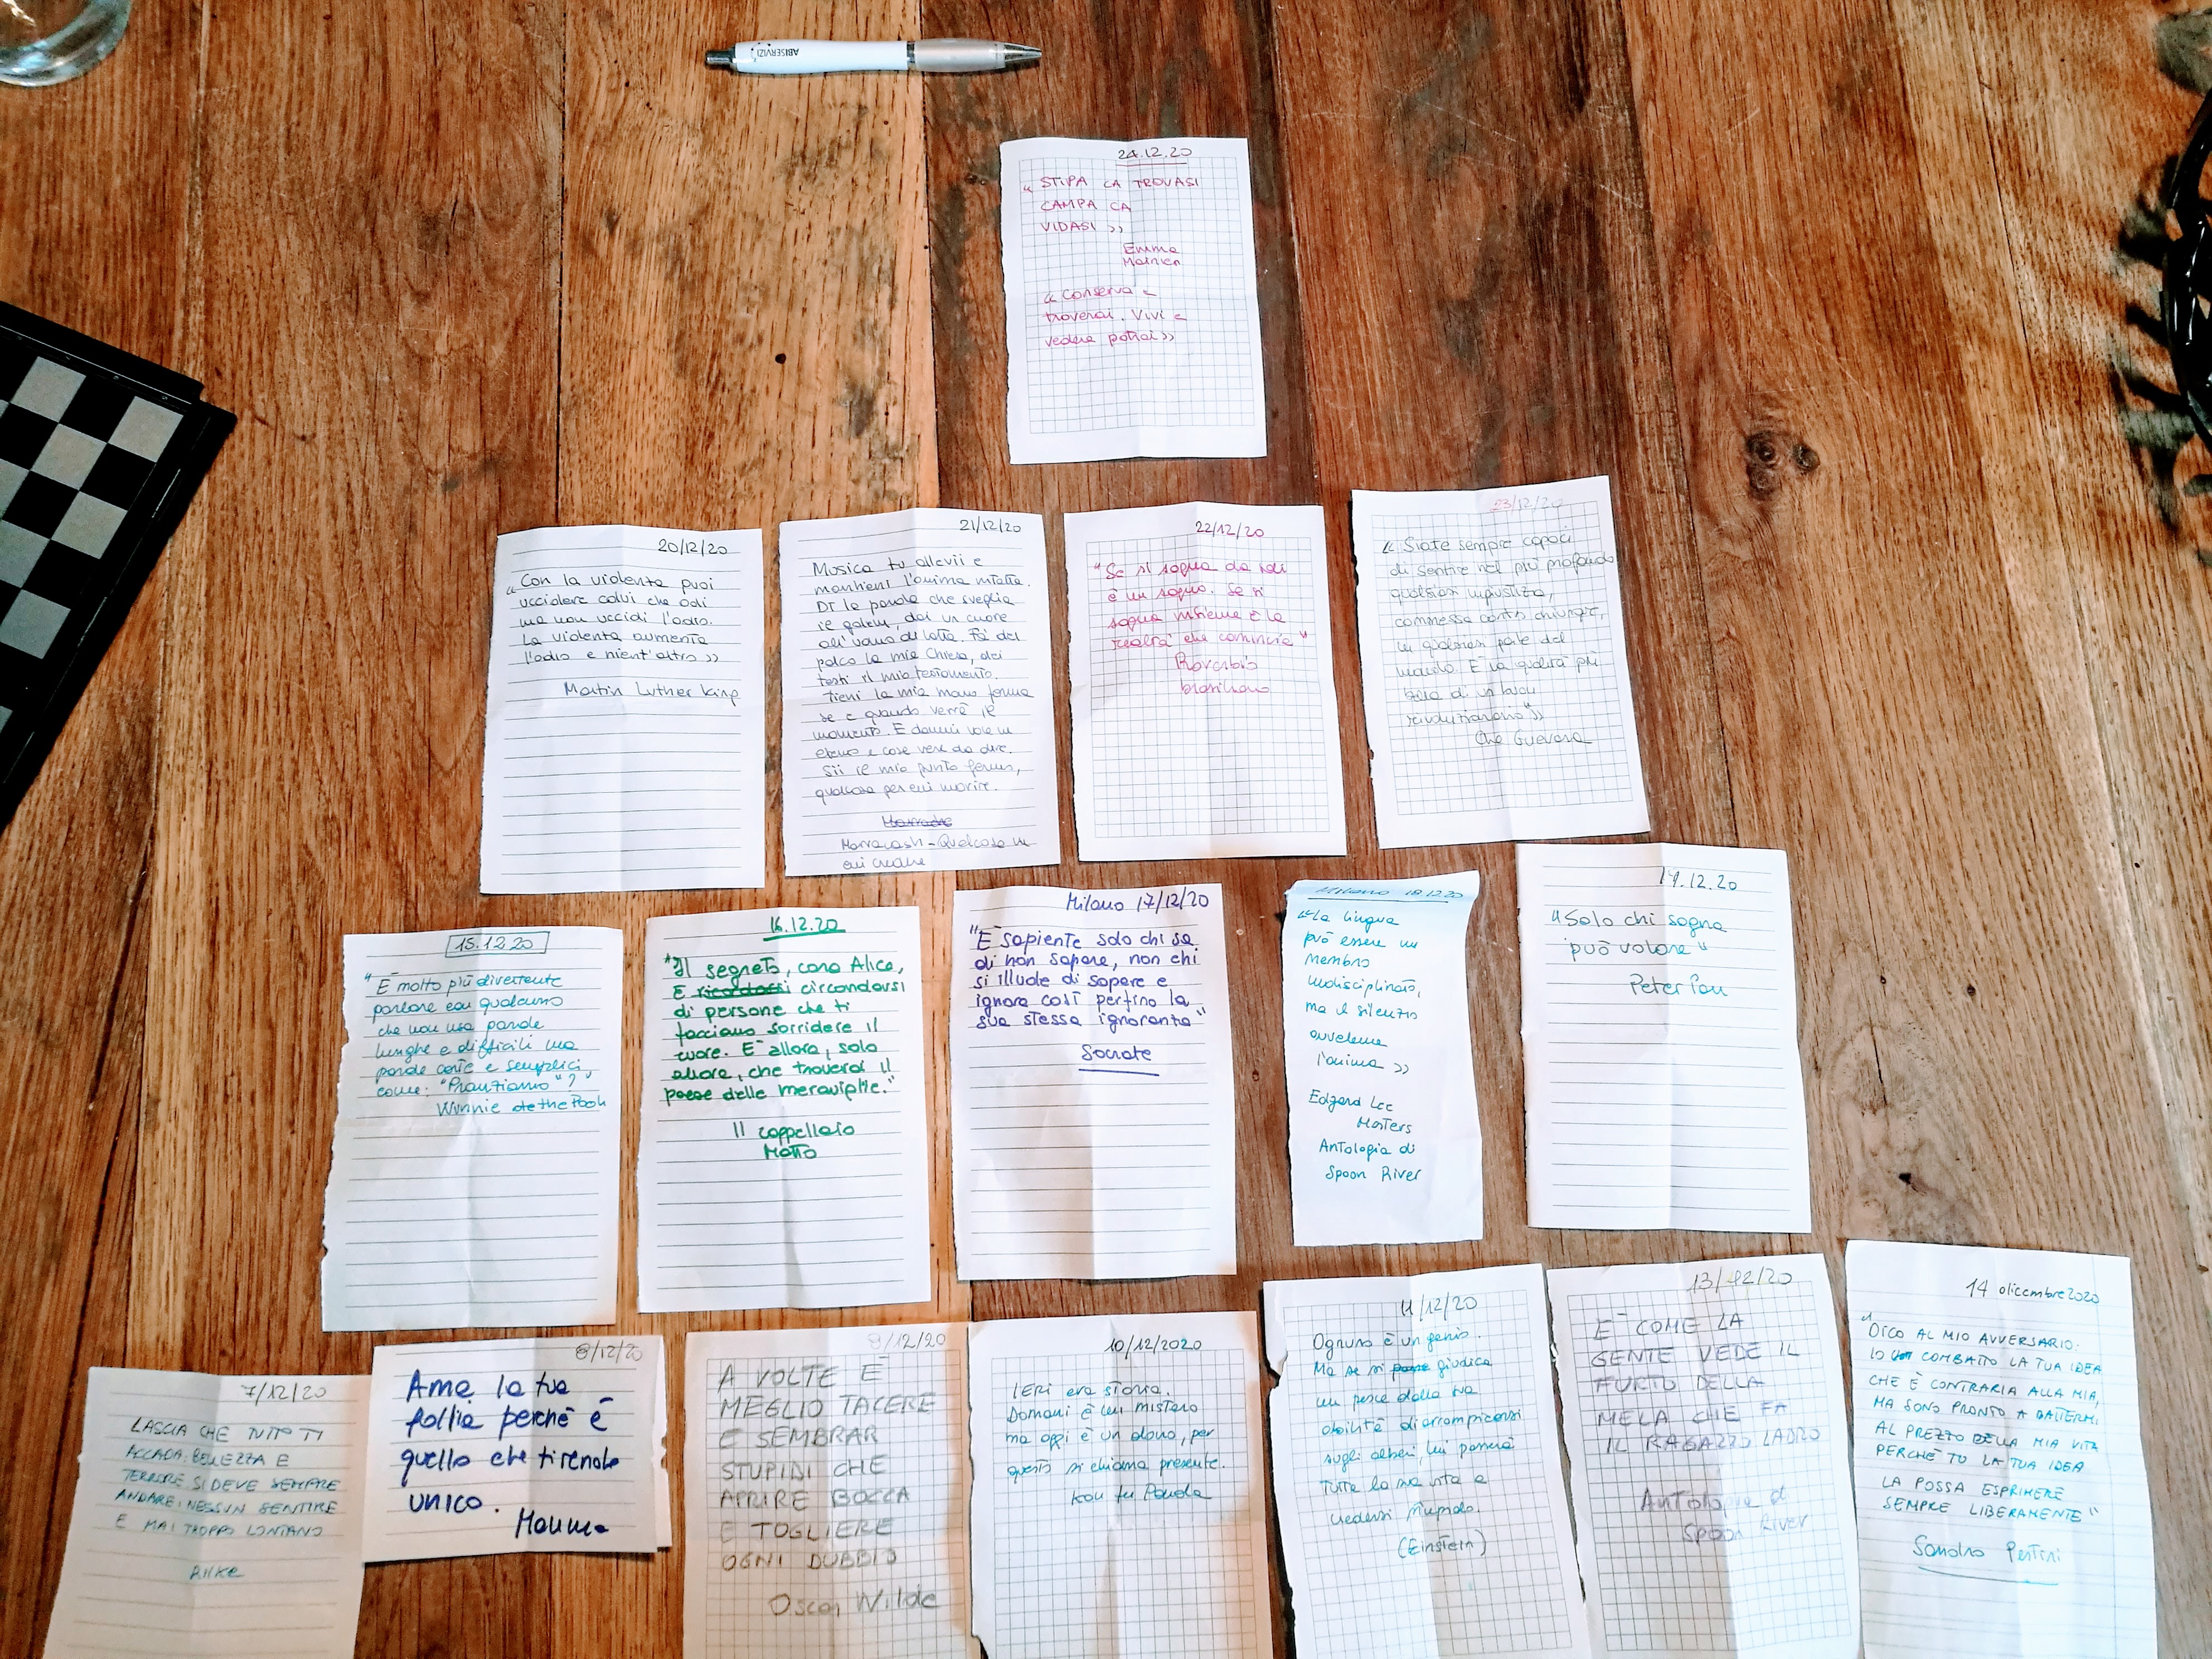 ABISERVIZI
24.12.20
" STIPA CA TROVASI
CAMPA CA
VIDASI >>
Emma
<< Conserva e
troverai. Vivi e
vedere potrai >>
20/12/20
<< Con la violenza puoi
uccidere colui che odi
ma non uccidi l'odio.
La violenza aumenta
l'odio e nient'altro >>
Martin Luther King
21/12/20
Musica tu allevii e
mantieni l'anima intatta.
Di' le parole che sveglia
il golem, dai un cuore
all'uomo di latta. Fai del
palco la mia Chiesa, dei
testi il mio testamento.
Tieni la mia mano ferma
se e quando verrà il
momento. E dammi voce in
eterno e cose vere da dire.
Sii il mio punto fermo,
qualcosa per cui morire.
Marracash - Qualcosa in
cui credere
22/12/20
"Se si sogna da soli
è un sogno. Se si
sogna insieme è la
realtà che comincia"
Proverbio
brasiliano
23/12/20
<< Siate sempre capaci
di sentire nel più profondo
qualsiasi ingiustizia,
commessa contro chiunque,
in qualsiasi parte del
mondo. È la qualità più
bella di un
rivoluzionario" >>
Che Guevara
15.12.20
"È molto più divertente
parlare con qualcuno
che non usa parole
lunghe e difficili ma
parole corte e semplici,
come: "Pranziamo"?"
Winnie the Pooh
16.12.20
"Il segreto, cara Alice,
È ricordarsi circondarsi
di persone che ti
facciano sorridere il
cuore. È allora, solo
allora, che troverai il
paese delle meraviglie."
Il cappellaio
Matto
Milano 17/12/20
"È sapiente solo chi sa
di non sapere, non chi
si illude di sapere e
ignora così perfino la
sua stessa ignoranza"
Socrate
Milano 18.12.20
<< La lingua
può essere un
membro
indisciplinato,
ma il silenzio
avvelena
l'anima >>
Edgard Lee
Masters
Antologia di
Spoon River
19.12.20
"Solo chi sogna
può volare"
Peter Pan
7/12/20
LASCIA CHE TUTTO TI
ACCADA: BELLEZZA E
TERRORE. SI DEVE SEMPRE
ANDARE: NESSUN SENTIRE
È MAI TROPPO LONTANO
Rilke
8/12/20
Ama la tua
follia perché è
quello che ti rende
unico.
9/12/20
A VOLTE È
MEGLIO TACERE
E SEMBRAR
STUPIDI CHE
APRIRE BOCCA
E TOGLIERE
OGNI DUBBIO
Oscar Wilde
10/12/2020
IERI era storia.
Domani è un mistero
ma oggi è un dono, per
questo si chiama presente.
Kou fu Panda
11/12/20
Ognuno è un genio.
Ma se si giudica
un pesce dalla sua
abilità di arrampicarsi
sugli alberi, lui passerà
tutta la sua vita a
credersi stupido.
(Einstein)
13/12/20
È COME LA
GENTE VEDE IL
FURTO DELLA
MELA CHE FA
IL RAGAZZO LADRO
Antologia di
Spoon River
14 dicembre 2020
"DICO AL MIO AVVERSARIO:
IO COMBATTO LA TUA IDEA
CHE È CONTRARIA ALLA MIA,
MA SONO PRONTO A BATTERMI
AL PREZZO DELLA MIA VITA
PERCHÈ TU LA TUA IDEA
LA POSSA ESPRIMERE
SEMPRE LIBERAMENTE"
Sandro Pertini